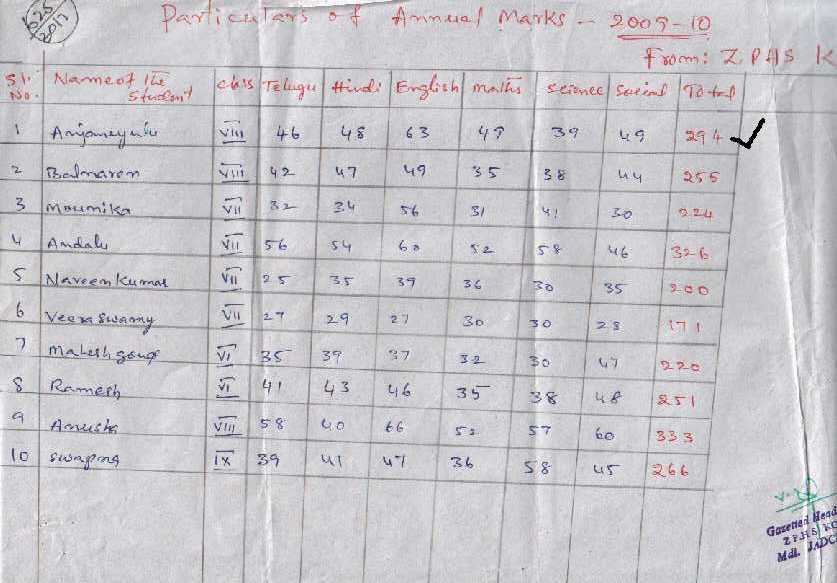 625
2017
Particulars of Annual Marks - 2009-10
From: ZPHS K
Sl. No. Name of the Student class Telugu Hindi English maths science Social Total
1 Anjaneyulu VIII 46 48 63 49 39 49 294
2 Balnaren VIII 42 47 49 35 38 44 255
3 Mounika VII 32 34 56 31 41 30 224
4 Andalu VII 56 54 60 52 58 46 326
5 Naveen Kumar VII 25 35 39 36 30 35 200
6 Veera swamy VII 27 29 27 30 30 28 171
7 Mahesh goud VI 35 39 37 32 30 47 220
8 Ramesh VI 41 43 46 35 38 48 251
9 Anusha VIII 58 40 66 52 57 60 333
10 Swapna IX 39 41 47 36 58 45 266
Gazetted Head
Z.P.H.S KO
Mdl. JADC